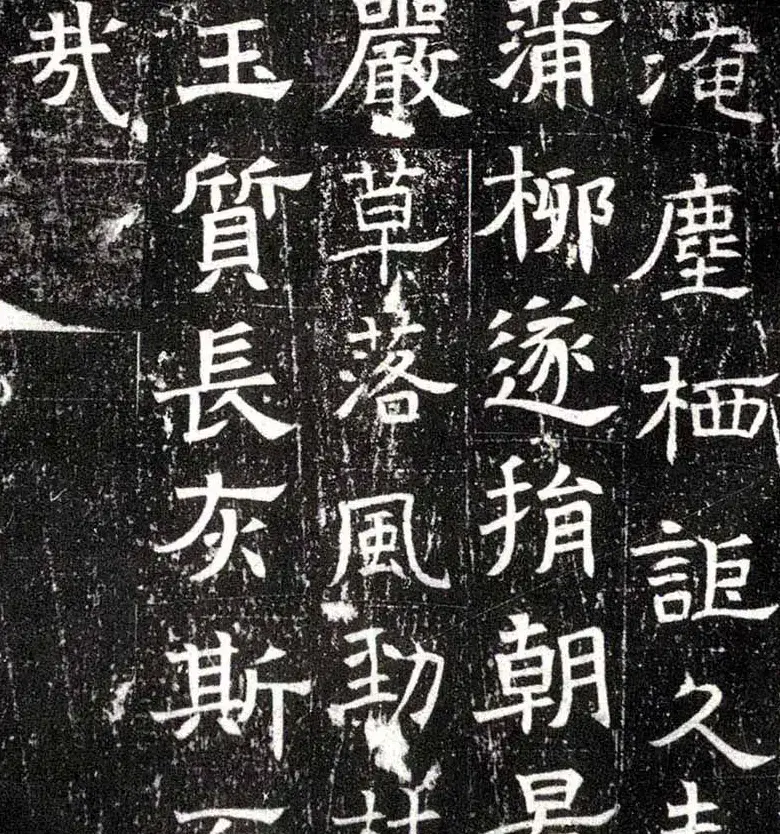 淹塵栖詎久
蒲柳遂捐朝
嚴草落風勁
玉質長灰斯
哉